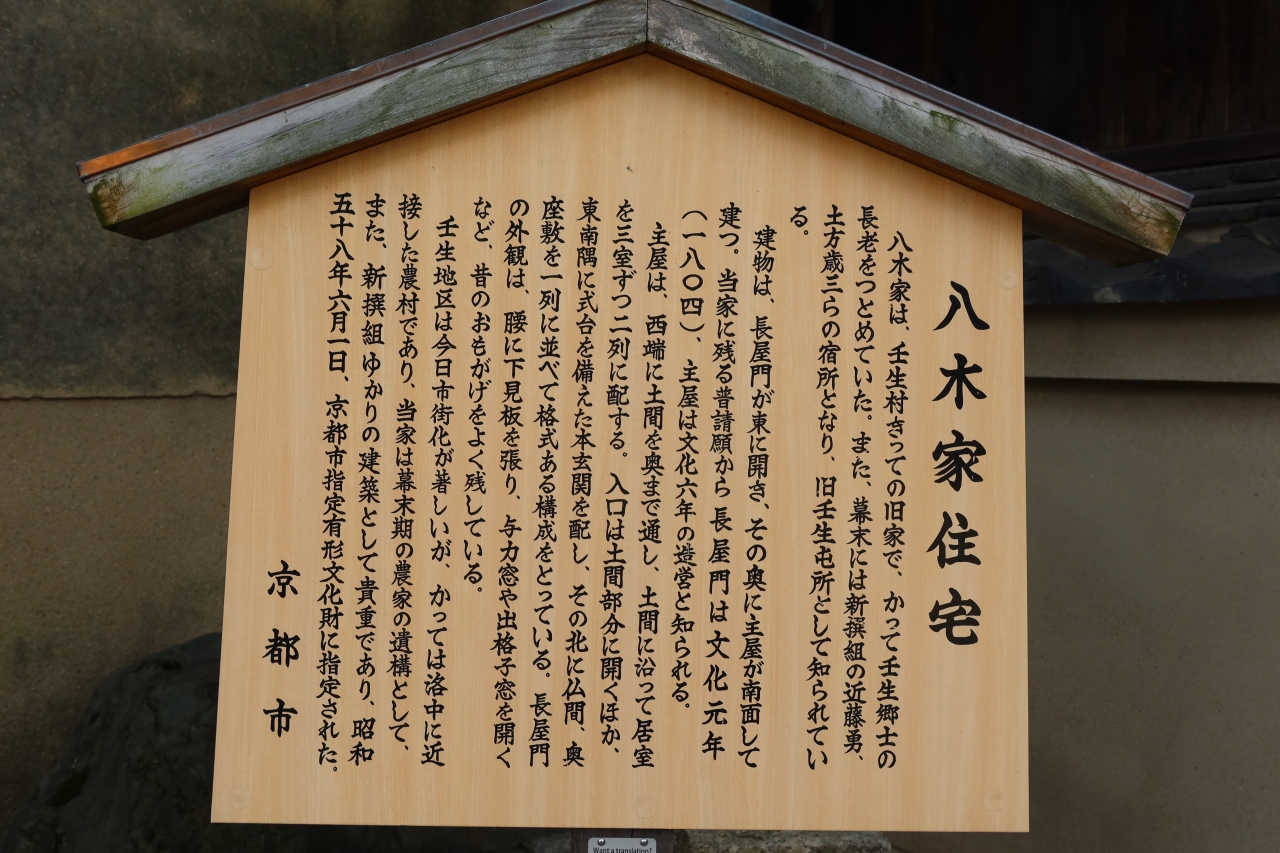 八木家住宅
八木家は、壬生村きっての旧家で、かって壬生郷士の
長老をつとめていた。また、幕末には新撰組の近藤勇、
土方歳三らの宿所となり、旧壬生屯所として知られてい
る。
建物は、長屋門が東に開き、その奥に主屋が南面して
建つ。当家に残る普請願から長屋門は文化元年
(一八〇四)、主屋は文化六年の造営と知られる。
主屋は、西端に土間を奥まで通し、土間に沿って居室
を三室ずつ二列に配する。入口は土間部分に開くほか、
東南隅に式台を備えた本玄関を配し、その北に仏間、奥
座敷を一列に並べて格式ある構成をとっている。長屋門
の外観は、腰に下見板を張り、与力窓や出格子窓を開く
など、昔のおもがげをよく残している。
壬生地区は今日市街化が著しいが、かっては洛中に近
接した農村であり、当家は幕末期の農家の遺構として、
また、新撰組ゆかりの建築として貴重であり、昭和
五十八年六月一日、京都市指定有形文化財に指定された。
京都市
Want a translation?